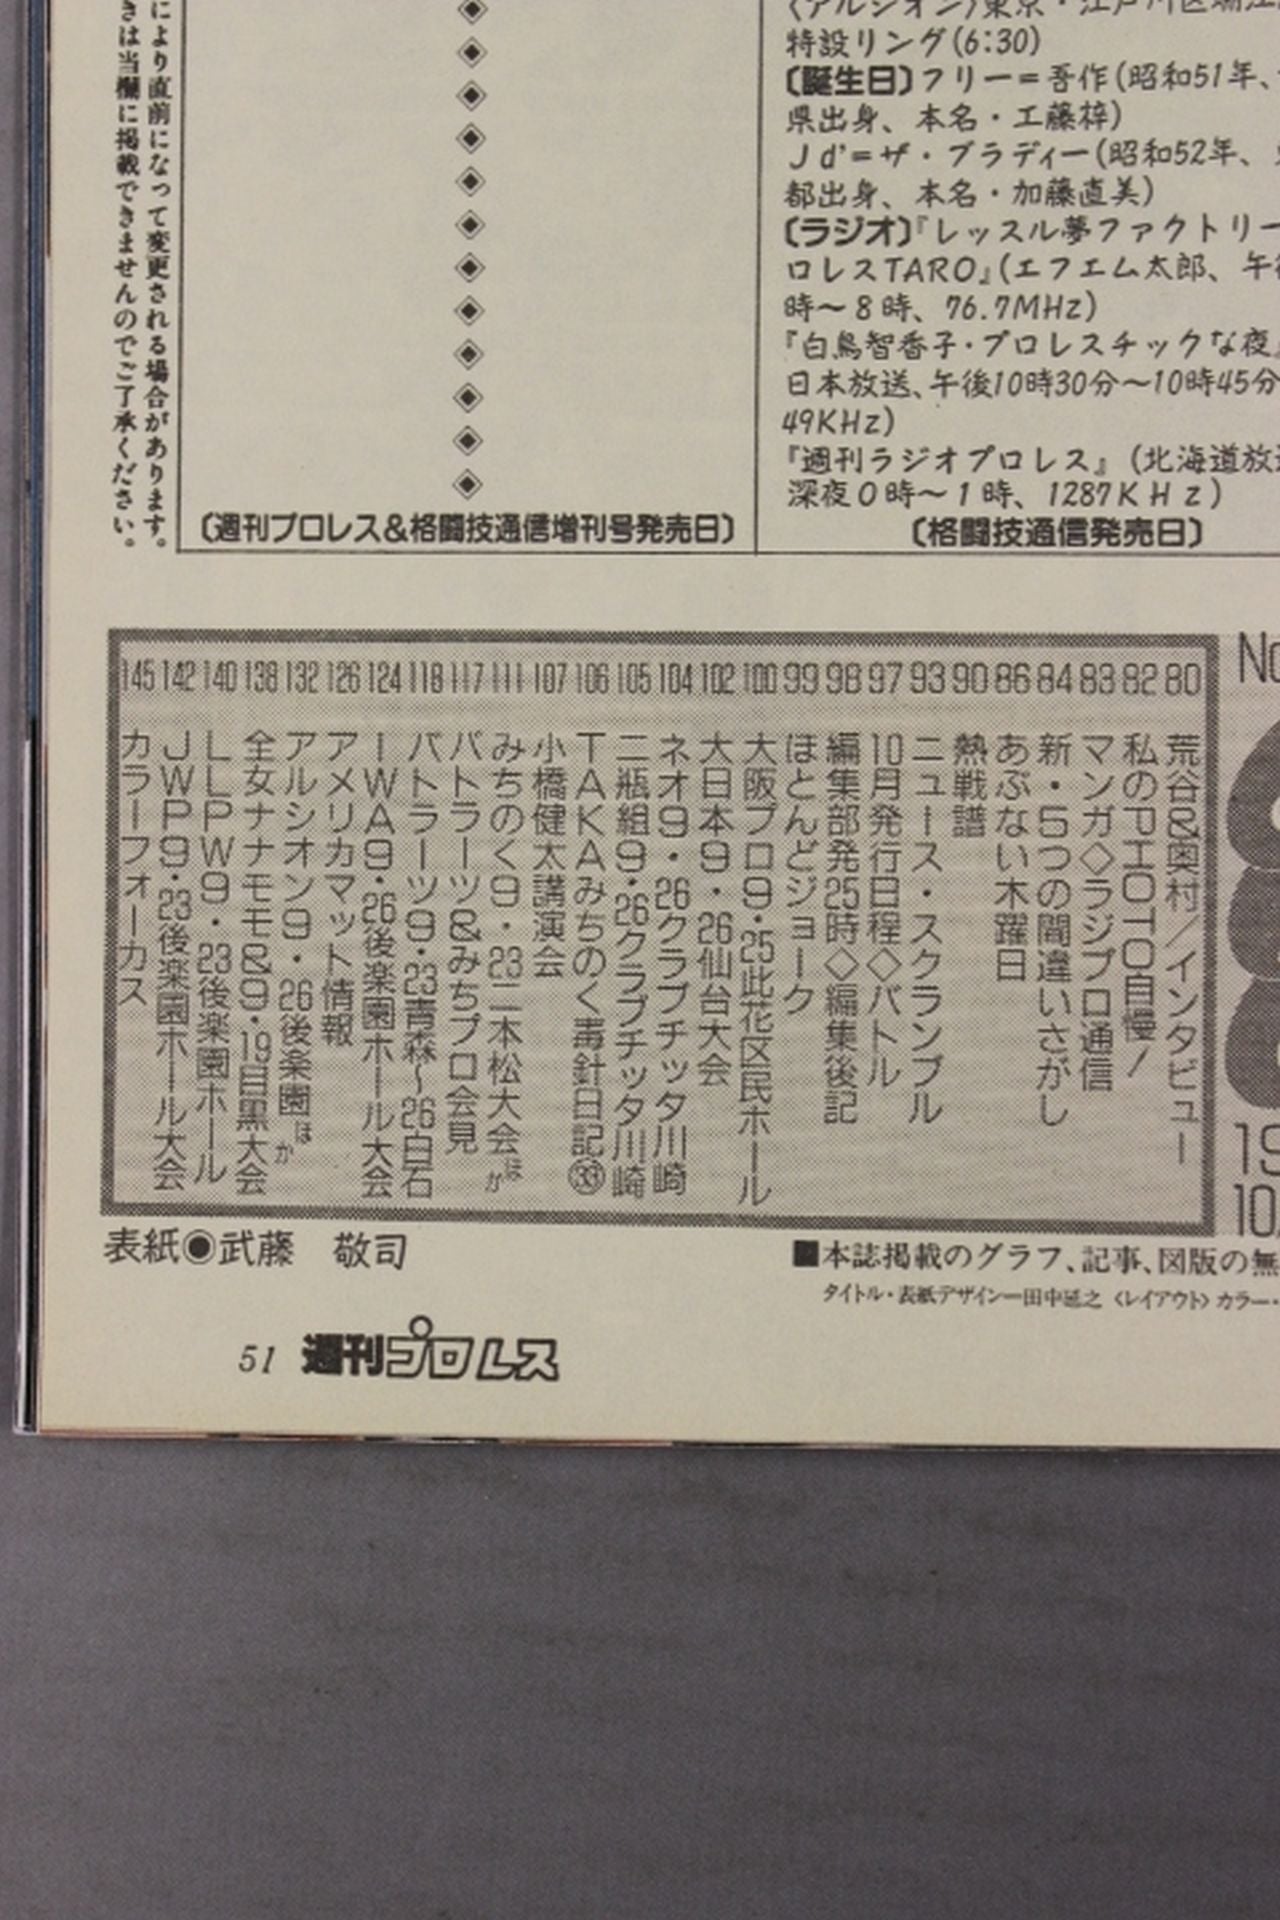 〈アルシオン〉東京・江戸川区
特設リング(6:30)
〔誕生日〕フリー＝吾作(昭和51年、
県出身、本名・工藤梓)
Ｊｄ'＝ザ・ブラディー(昭和52年、
都出身、本名・加藤直美)
〔ラジオ〕『レッスル夢ファクトリー
ロレスTARO』(エフエム太郎、午後
時〜８時、76.7MHz)
『白鳥智香子・プロレスチックな夜
日本放送、午後10時30分〜10時45分
49KHz)
『週刊ラジオプロレス』(北海道放送
深夜０時〜１時、1287ＫＨｚ)
〔格闘技通信発売日〕
◈
◈
◈
◈
◈
◈
◈
◈
◈
◈
◈
◈
〔週刊プロレス&格闘技通信増刊号発売日〕
により直前になって変更される場合があります。
きは当欄に掲載できませんのでご了承ください。
No
19
10
80 荒谷&奥村／インタビュー
82 私のPHOTO自慢／
83 マンガ◇ラジプロ通信
84 新・5つの間違いさがし
86 あぶない木曜日
90 熱戦譜
93 ニュース・スクランブル
97 10月発行日程◇バトル
98 編集部発25時◇編集後記
99 ほとんどジョーク
100 大阪プロ9・25此花区民ホール
102 大日本9・26仙台大会
104 ネオ9・26クラブチッタ川崎
105 二瓶組9・26クラブチッタ川崎
106 TAKAみちのく毒針日記㉝
107 小橋健太講演会
111 みちのく9・23二本松大会ほか
117 バトラーツ&みちプロ会見
118 バトラーツ9・23青森〜26白石
124 IWA9・26後楽園ホール大会
126 アメリカマット情報
132 アルシオン9・26後楽園ほか
138 全女ナナモモ&9・19目黒大会
140 LLPW9・23後楽園ホール
142 JWP9・23後楽園ホール大会
145 カラーフォーカス
表紙◉武藤　敬司
■本誌掲載のグラフ、記事、図版の無
タイトル・表紙デザイン―田中延之〈レイアウト〉カラー・
51 週刊プロレス